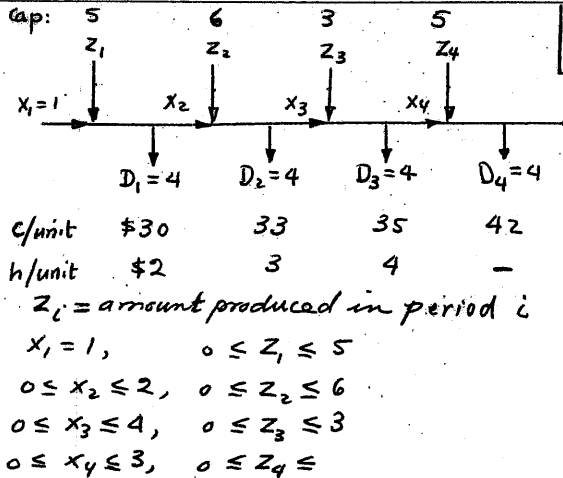 Cap: 5 6 3 5
Z₁ Z₂ Z₃ Z₄
X₁=1 X₂ X₃ X₄
D₁=4 D₂=4 D₃=4 D₄=4
c/unit $30 33 35 42
h/unit $2 3 4 –
Zᵢ = amount produced in period i
X₁ = 1, 0 ≤ Z₁ ≤ 5
0 ≤ X₂ ≤ 2, 0 ≤ Z₂ ≤ 6
0 ≤ X₃ ≤ 4, 0 ≤ Z₃ ≤ 3
0 ≤ X₄ ≤ 3, 0 ≤ Z₄ ≤